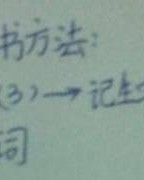 书方法:
(3)→记生
词